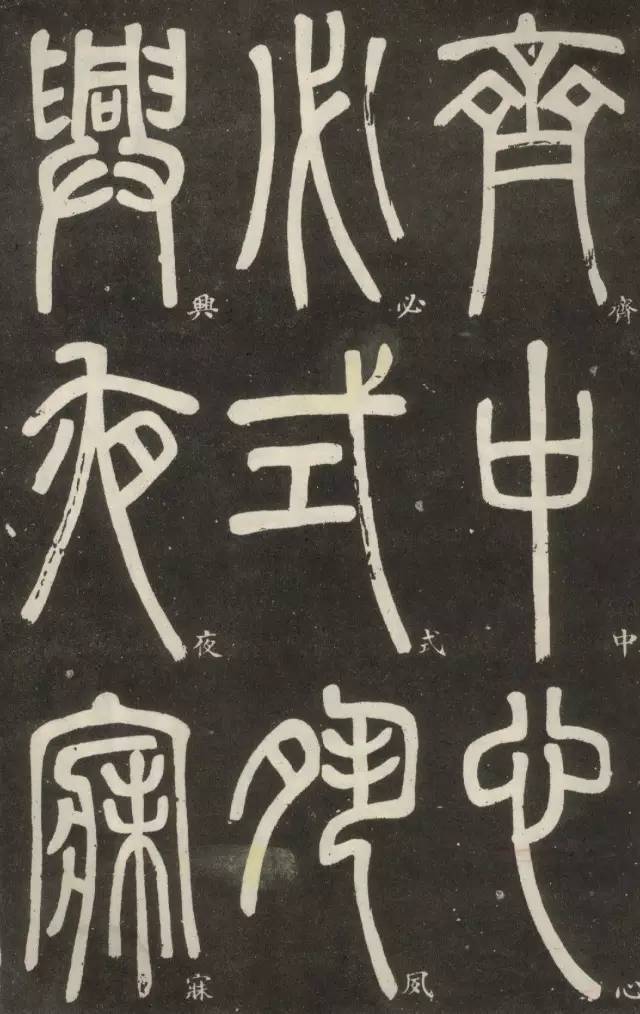 齊中心
齊中心
必式夙
必式夙
興夜寐
興夜寐